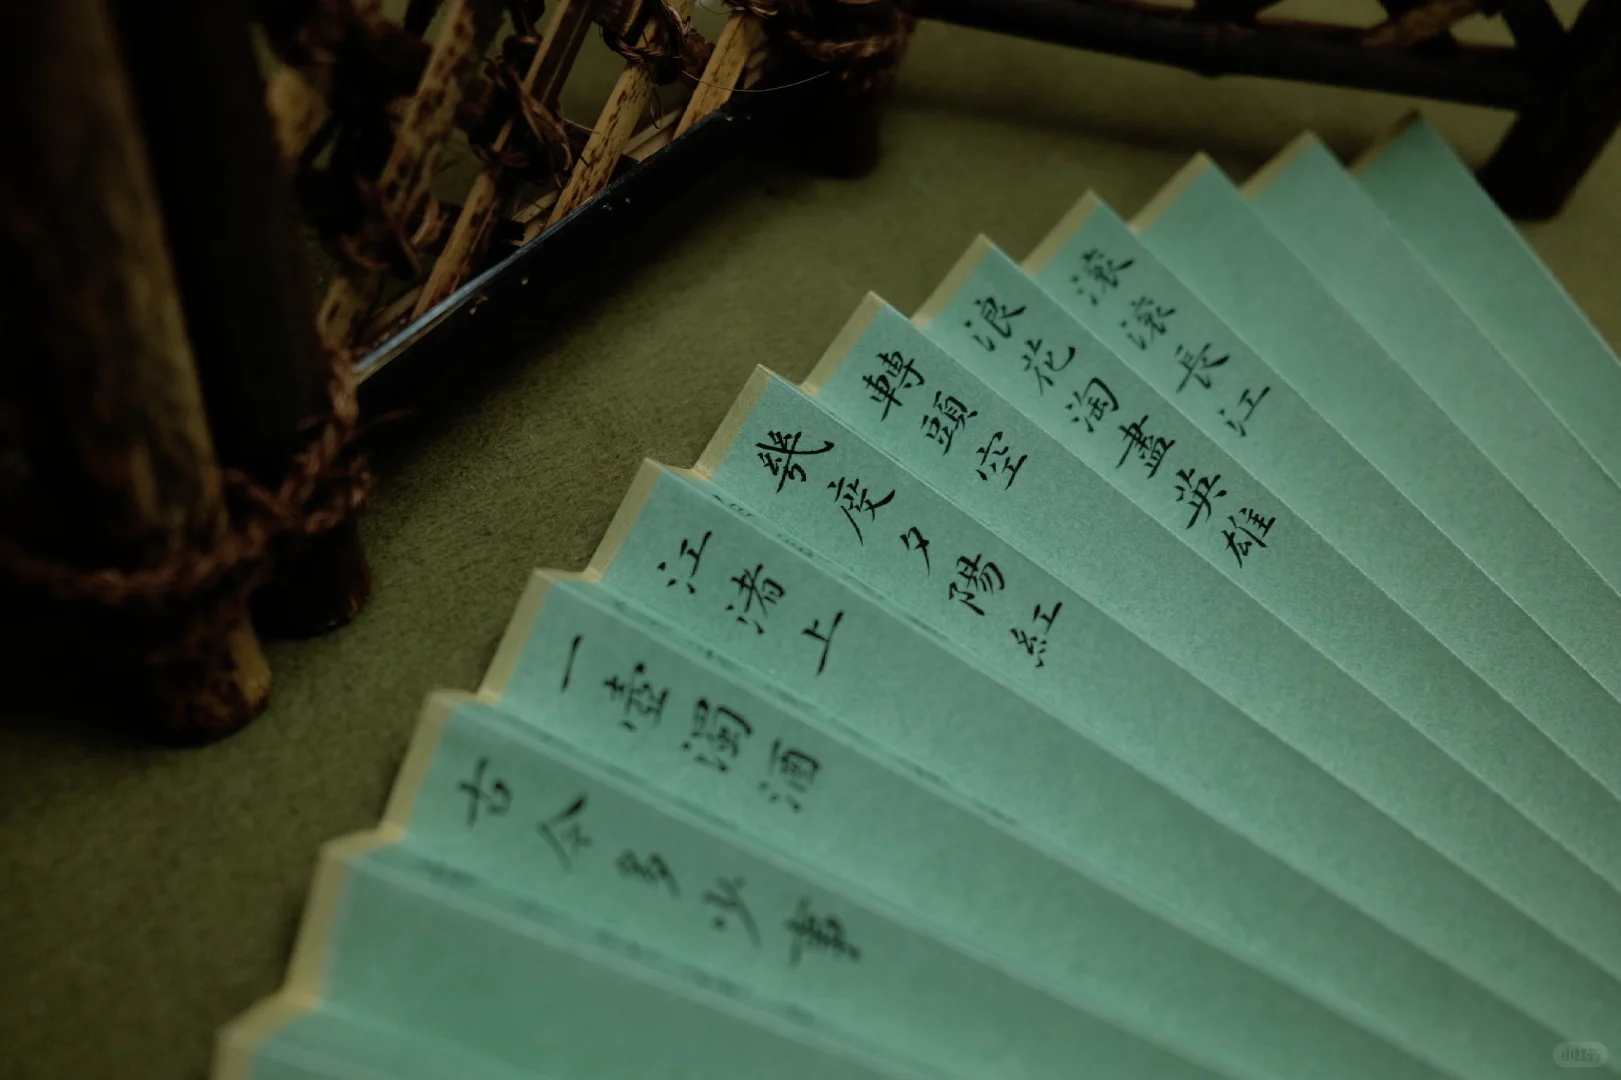 滾滾長江
浪花淘盡英雄
轉頭空
幾度夕陽紅
江渚上
一壺濁酒
古今多少事
小红书